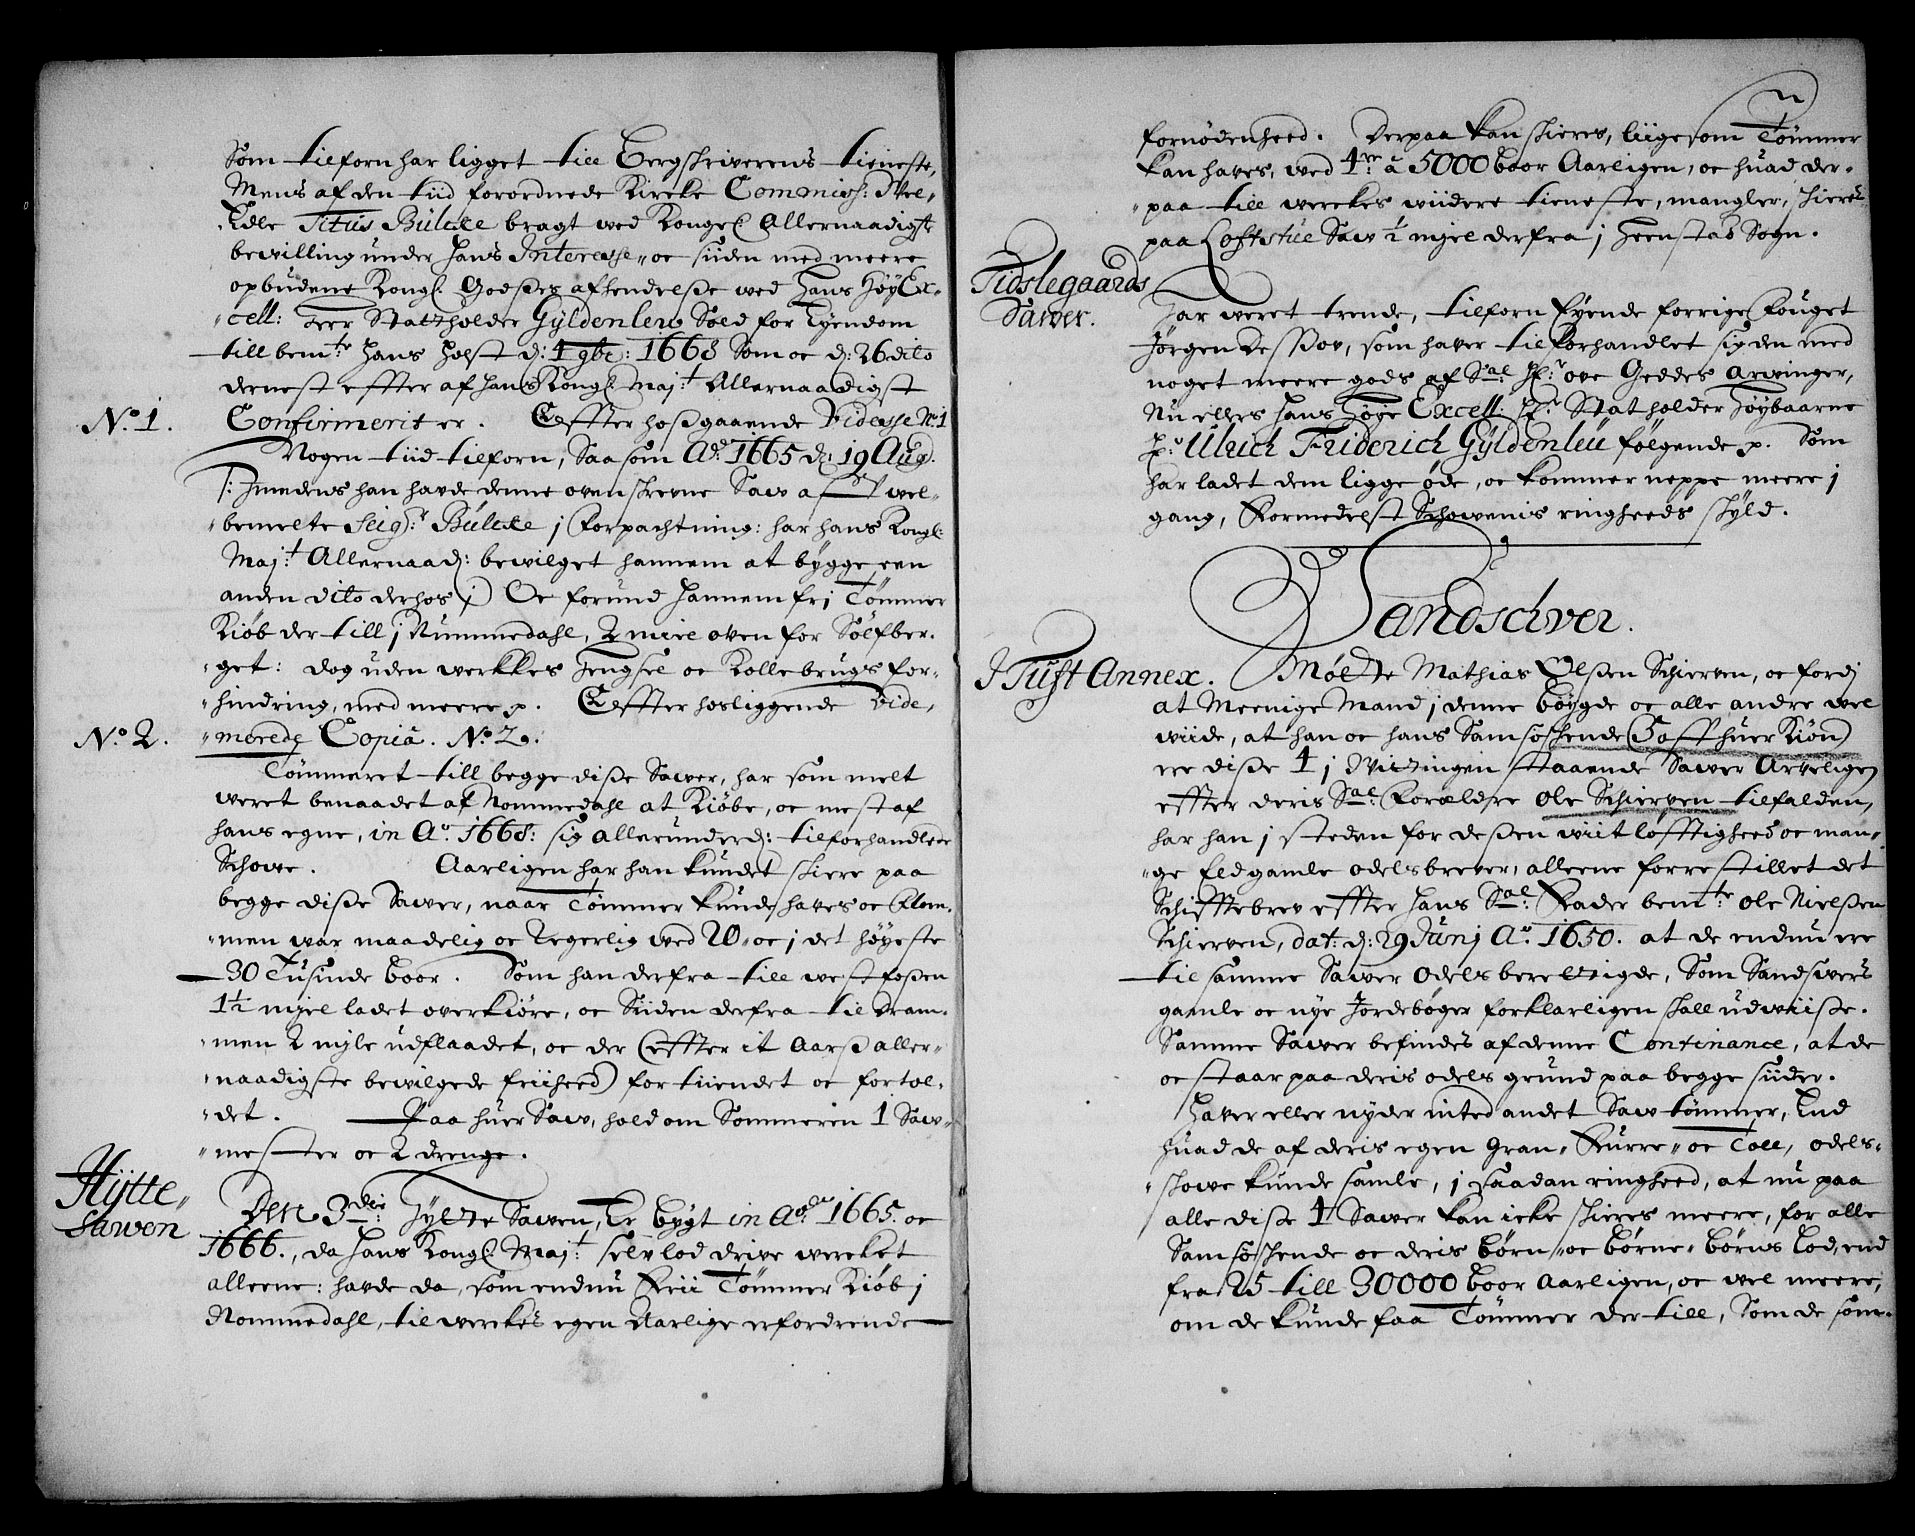 Som tilforn har ligget till Bergskriverens tieneste,
Mens af den tiid forordnede Kircke Comoniss: Wel„
Edle Titus Bülcke bragt ved Kongel Allernaadigst
bewilling under hans Interesse„ oc siiden med meere
opbudene Kongl: Godses afhendelsse ved Hans Høy Ex„
„cell: Herr Statholder Gyldenlew Sold for Eyendom
till bemte: Hans Holst d: 4 9br: 1668 Som oc d: 26 dito
dernest effter af Hans Kongl: Maj:t Allernaadigst
No. 1. Confirmerit er. Effter hosgaaende Vidisse No 1
Nogen tiid tilforn, Saa som Ao: 1665 d: 19 Aug.
/: Imedens han havde denne ovenskrevne Saw af wel„
„bemelte Seigr: Bülcke j Forpachtning: har hans Kongl:
Maj:t Allernaad: bewilget hannem at bygge een
anden dito derhos /: Oc forund Hannem frj Tømmer
Kiøb der till j Nummedahl, 2 miile oven for Sølfber„
„get: dog uden werkkes Hengsel oc Kollebrugs for„
„hindring, med meere p. Effter hosliggende Vide„
No. 2. „merede Copia. No. 2.
Tømmeret till begge disse Sawer, har som melt
weret benaadet af Nommedahl at Kiøbe, oc mest af
hans egne, in Ao. 1668: sig allerunderd: tilforhandlede
Schowe. Aarligen har han kundet skiere paa
begge disse Sawer, naar Tømmer kunde haves oc Flom„
„men war maadelig oc Regerlig ved 20„ oc j det høyeste
30 Tusinde boor. Som han derfra till westfossen
1½ mjel ladet overkiøre, oc Siiden derfra til Dram„
„men 2 mjle udflaadet, oc der (effter it Aars aller„
„naadigste bewilgede friiheed) fortiiendet oc fortol„
„det. Paa huer Saw, hold om Sommeren 1 Saw„
„mester oc 2 drenge.
Hÿtte„
Sawen
Den 3die: Hytte Sawen, Er bygt in Ao 1665. oc
1666., da Hans Kongl: Maj:t selv lod drive wercket
alleene: havde da, som endnu Frii Tømmer Kiøb j
Nommedahl, til werckes egen Aarlige erfordrende
fornødenheed. Derpaa kan skieres, liigesom Tømmer
kan haves, ved 4re: á 5000 boor Aarligen, oc huad der„
„paa till werckes wiidere tieneste, mangler, skieres
paa Loftstue Saw ½ mjel derfra j Heenstad Sogn.
Tidslegaards
Sawer.
Har weret trende, tilforn Eyende forrige Fouget
Jørgen Desssov, som haver tilforhandlet sig den med
noget meere gods af Sal: Hr: Ove Geddes Arvinger,
Nu elles Hans Høye Excell: Hr: Statholder Høybaarne
Hr: Ulrich Friderich Gyldenleu følgende p. Som
har ladet dem ligge øde, oc kommer neppe meere j
gang, Formedelst Schowenis ringheeds skyld.
Sandschver.
J Tuft Annex. Mødte Mathias Olssen Schierven, oc fordj
at Meenige Mand j denne bøygde oc alle andre vel
wiide, at han oc hans Samsøskende (Saft huer Kiøn)
ere disse 4 j Wittingen staaende Sawer Arveligen
effter deris Sal: Forældre Ole Schierven tilfalden,
har han j steden for dessen wiitløfftigheed oc man„
„ge Eldgamle odelsbrever, alleene forrestillet det
Schifftebrev effter hans Sal: Fader bemte: Ole Nielssen
Schierven, dat: d: 29 Junj Ao. 1650. at de endnu ere
til samme Sawer Odels berettigde, Som Sandsvers
gamle oc nye Jordebøger forklarligen skall udwiisse.
Samme Sawer befindes af denne Continance, at de
oc staar paa deris odels grund paa begge siider.
Haver eller nyder inted andet Saw tømmer, End
huad de af deris egen Gran„ Furre„ oc Toll, odels„
„skowe kunde samle, j saadan ringheed, at nu paa
alle disse 4 Sawer kan icke skieres meere, for alle
Samsøskende oc deris børn„ oc børne„ børns Lod, end
fra 25 till 30000 boor Aarligen, oc wel meere,
om de kunde faa Tømmer der till, Som de som„